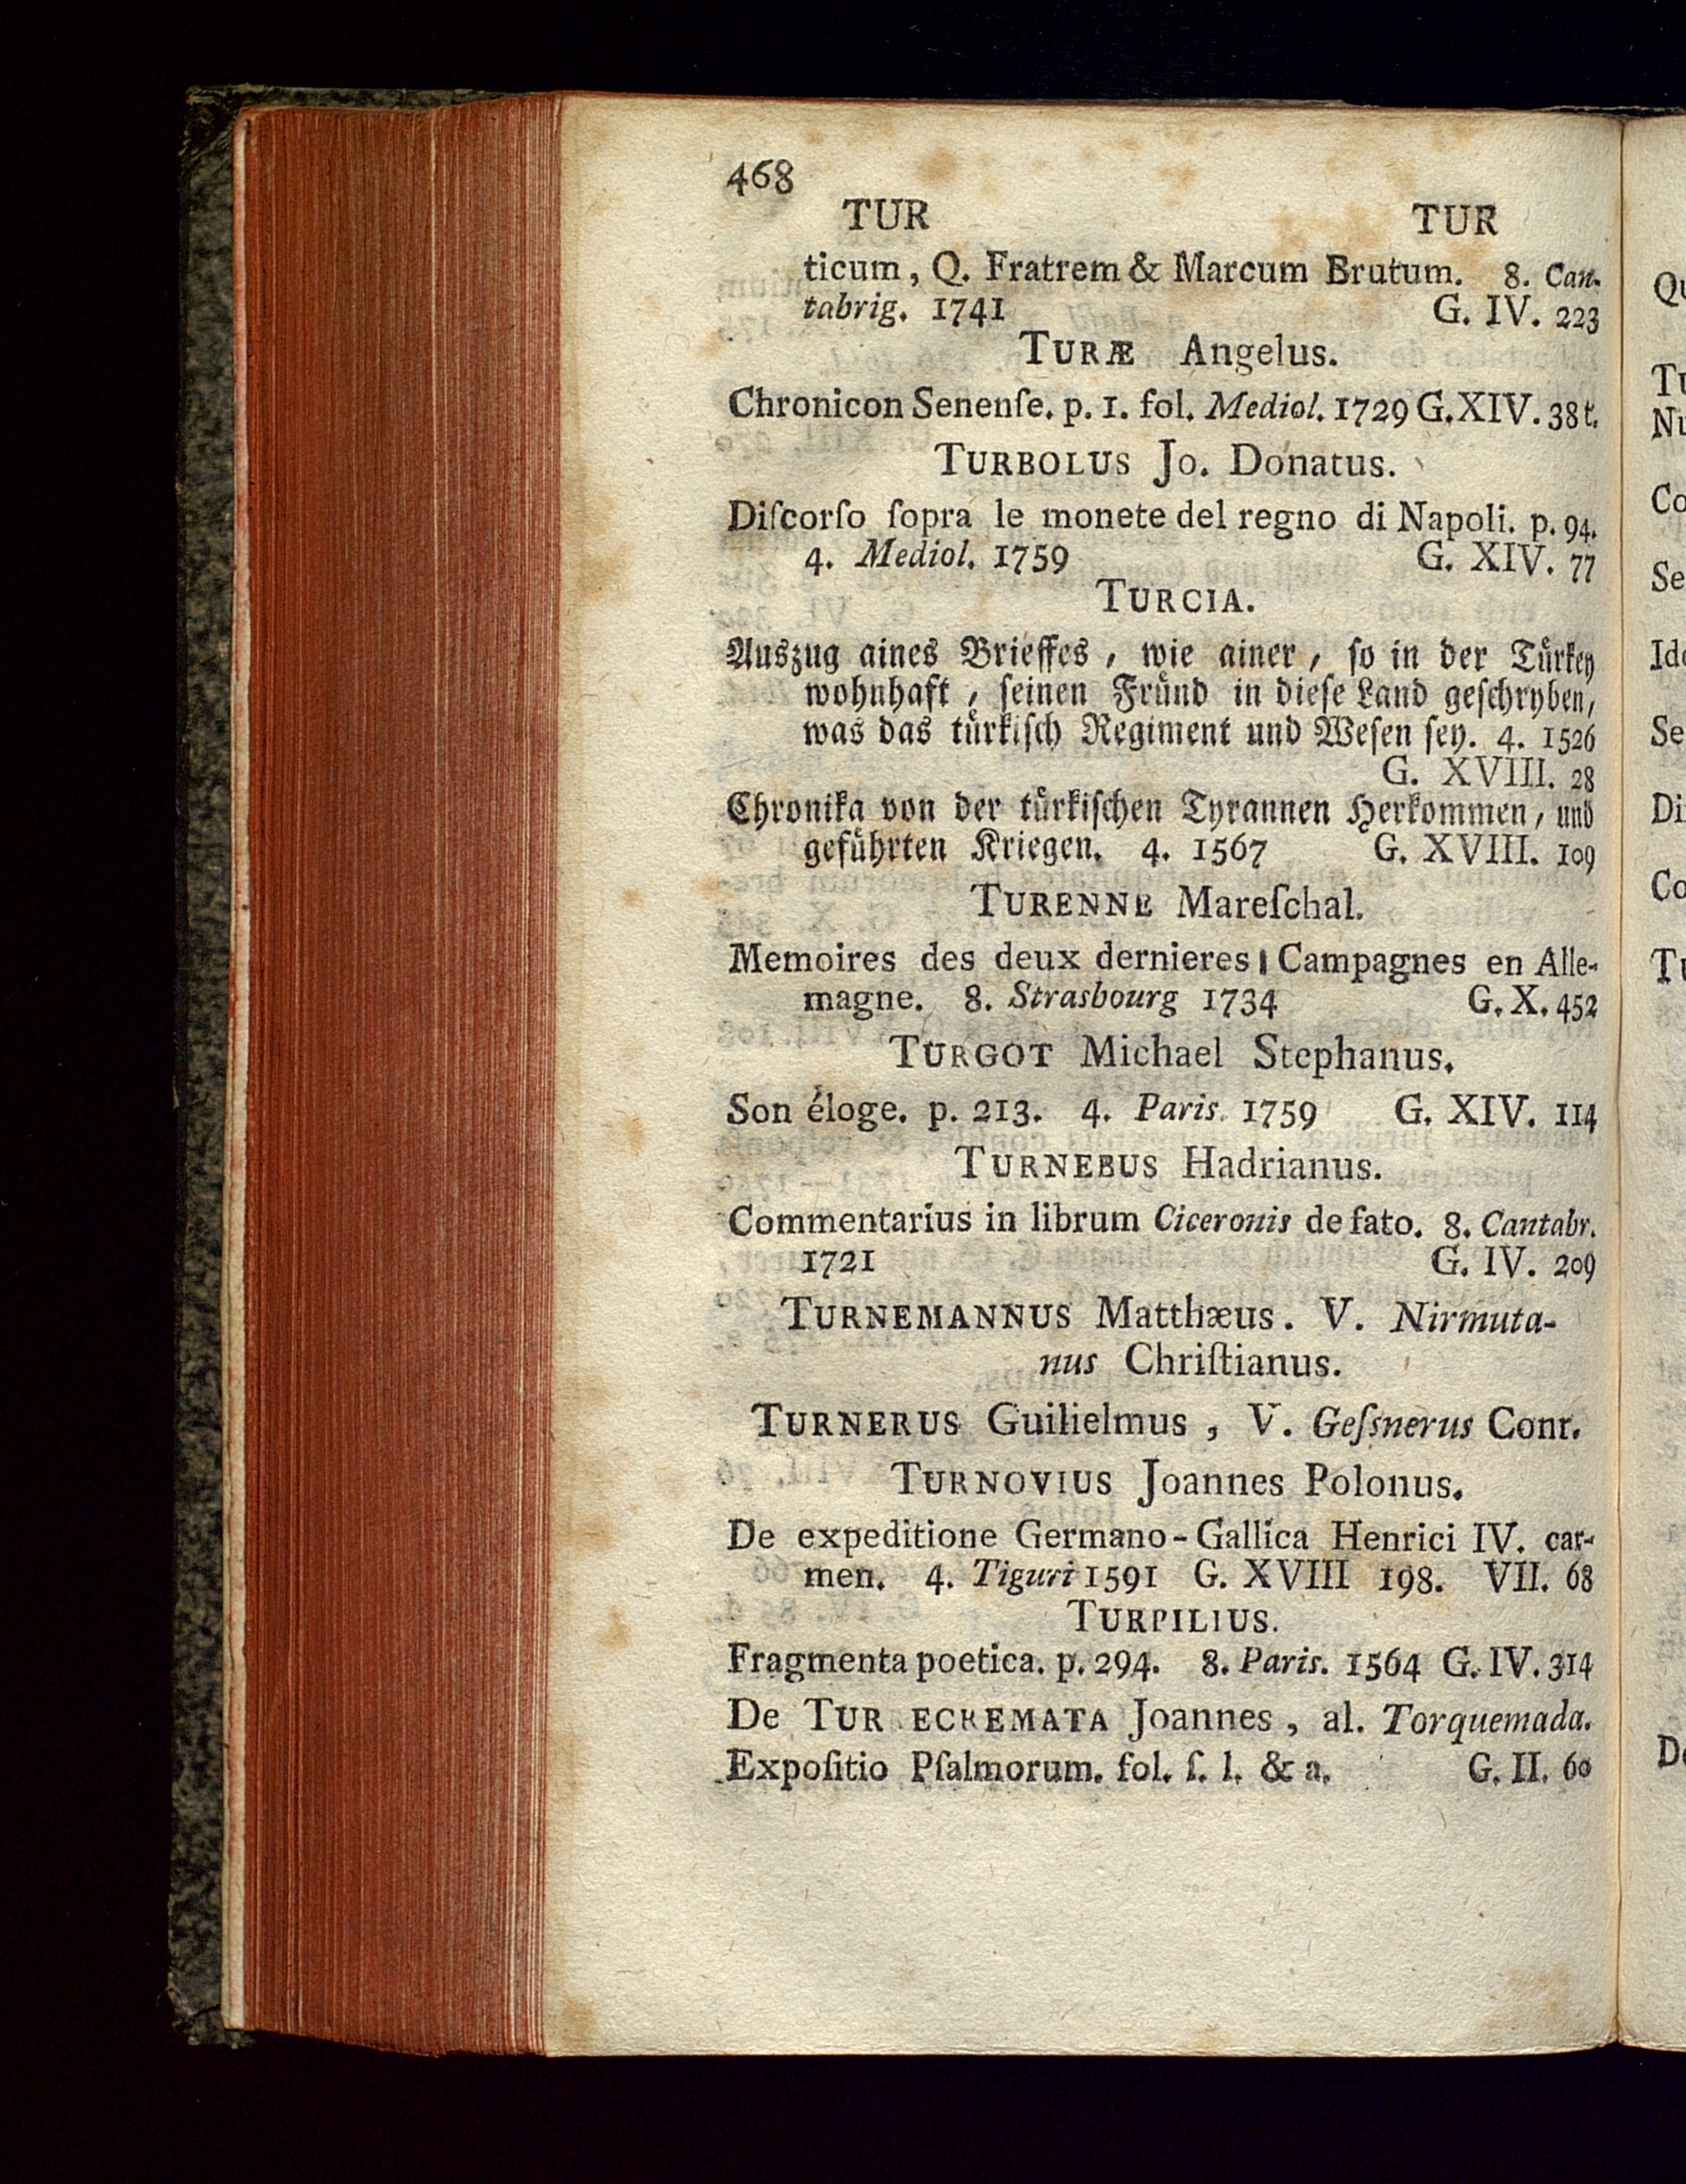 468
TUR TUR
ticum, Q. Fratrem & Marcum Brutum. 8. Can-
tabrig. 1741 G. IV. 223
TURÆ Angelus.
Chronicon Senenſe. p. 1. fol. Mediol. 1729 G. XIV. 38 t.
TURBOLUS Jo. Donatus.
Diſcorſo ſopra le monete del regno di Napoli. p. 94.
4. Mediol. 1759 G. XIV. 77
TURCIA.
Auszug aines Brieffes, wie ainer, ſo in der Türkey
wohnhaft, ſeinen Fründ in dieſe Land geſchryben,
was das türkiſch Regiment und Weſen ſey. 4. 1526
G. XVIII. 28
Chronika von der türkiſchen Tyrannen Herkommen, und
geführten Kriegen. 4. 1567 G. XVIII. 109
TURENNE Mareſchal.
Memoires des deux dernieres Campagnes en Alle-
magne. 8. Strasbourg 1734 G. X. 452
TURGOT Michael Stephanus.
Son éloge. p. 213. 4. Paris. 1759 G. XIV. 114
TURNEBUS Hadrianus.
Commentarius in librum Ciceronis de fato. 8. Cantabr.
1721 G. IV. 209
TURNEMANNUS Matthæus. V. Nirmuta-
nus Chriſtianus.
TURNERUS Guilielmus, V. Geſsnerus Conr.
TURNOVIUS Joannes Polonus.
De expeditione Germano-Gallica Henrici IV. car-
men. 4. Tiguri 1591 G. XVIII 198. VII. 68
TURPILIUS.
Fragmenta poetica. p. 294. 8. Paris. 1564 G. IV. 314
De TUR ECREMATA Joannes, al. Torquemada.
Expoſitio Pſalmorum. fol. ſ. l. & a. G. II. 60